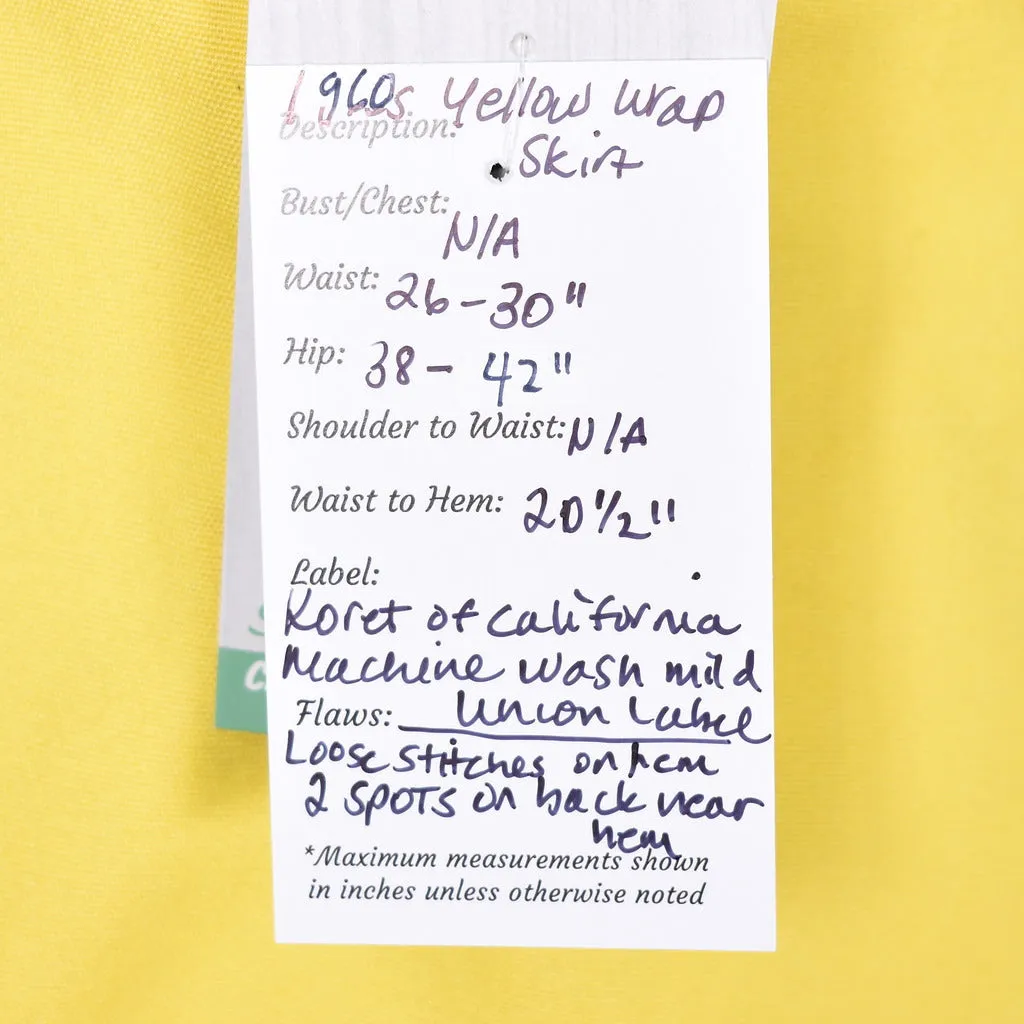 1960s Yellow Wrap
Description:
Skirt
Bust/Chest:
N/A
Waist: 26-30"
Hip: 38-42"
Shoulder to Waist: N/A
Waist to Hem: 20 1/2"
Label:
Koret of California
Machine wash mild
Flaws: Union Label
Loose stitches on hem
2 SPOTS on back near
hem
*Maximum measurements shown
in inches unless otherwise noted